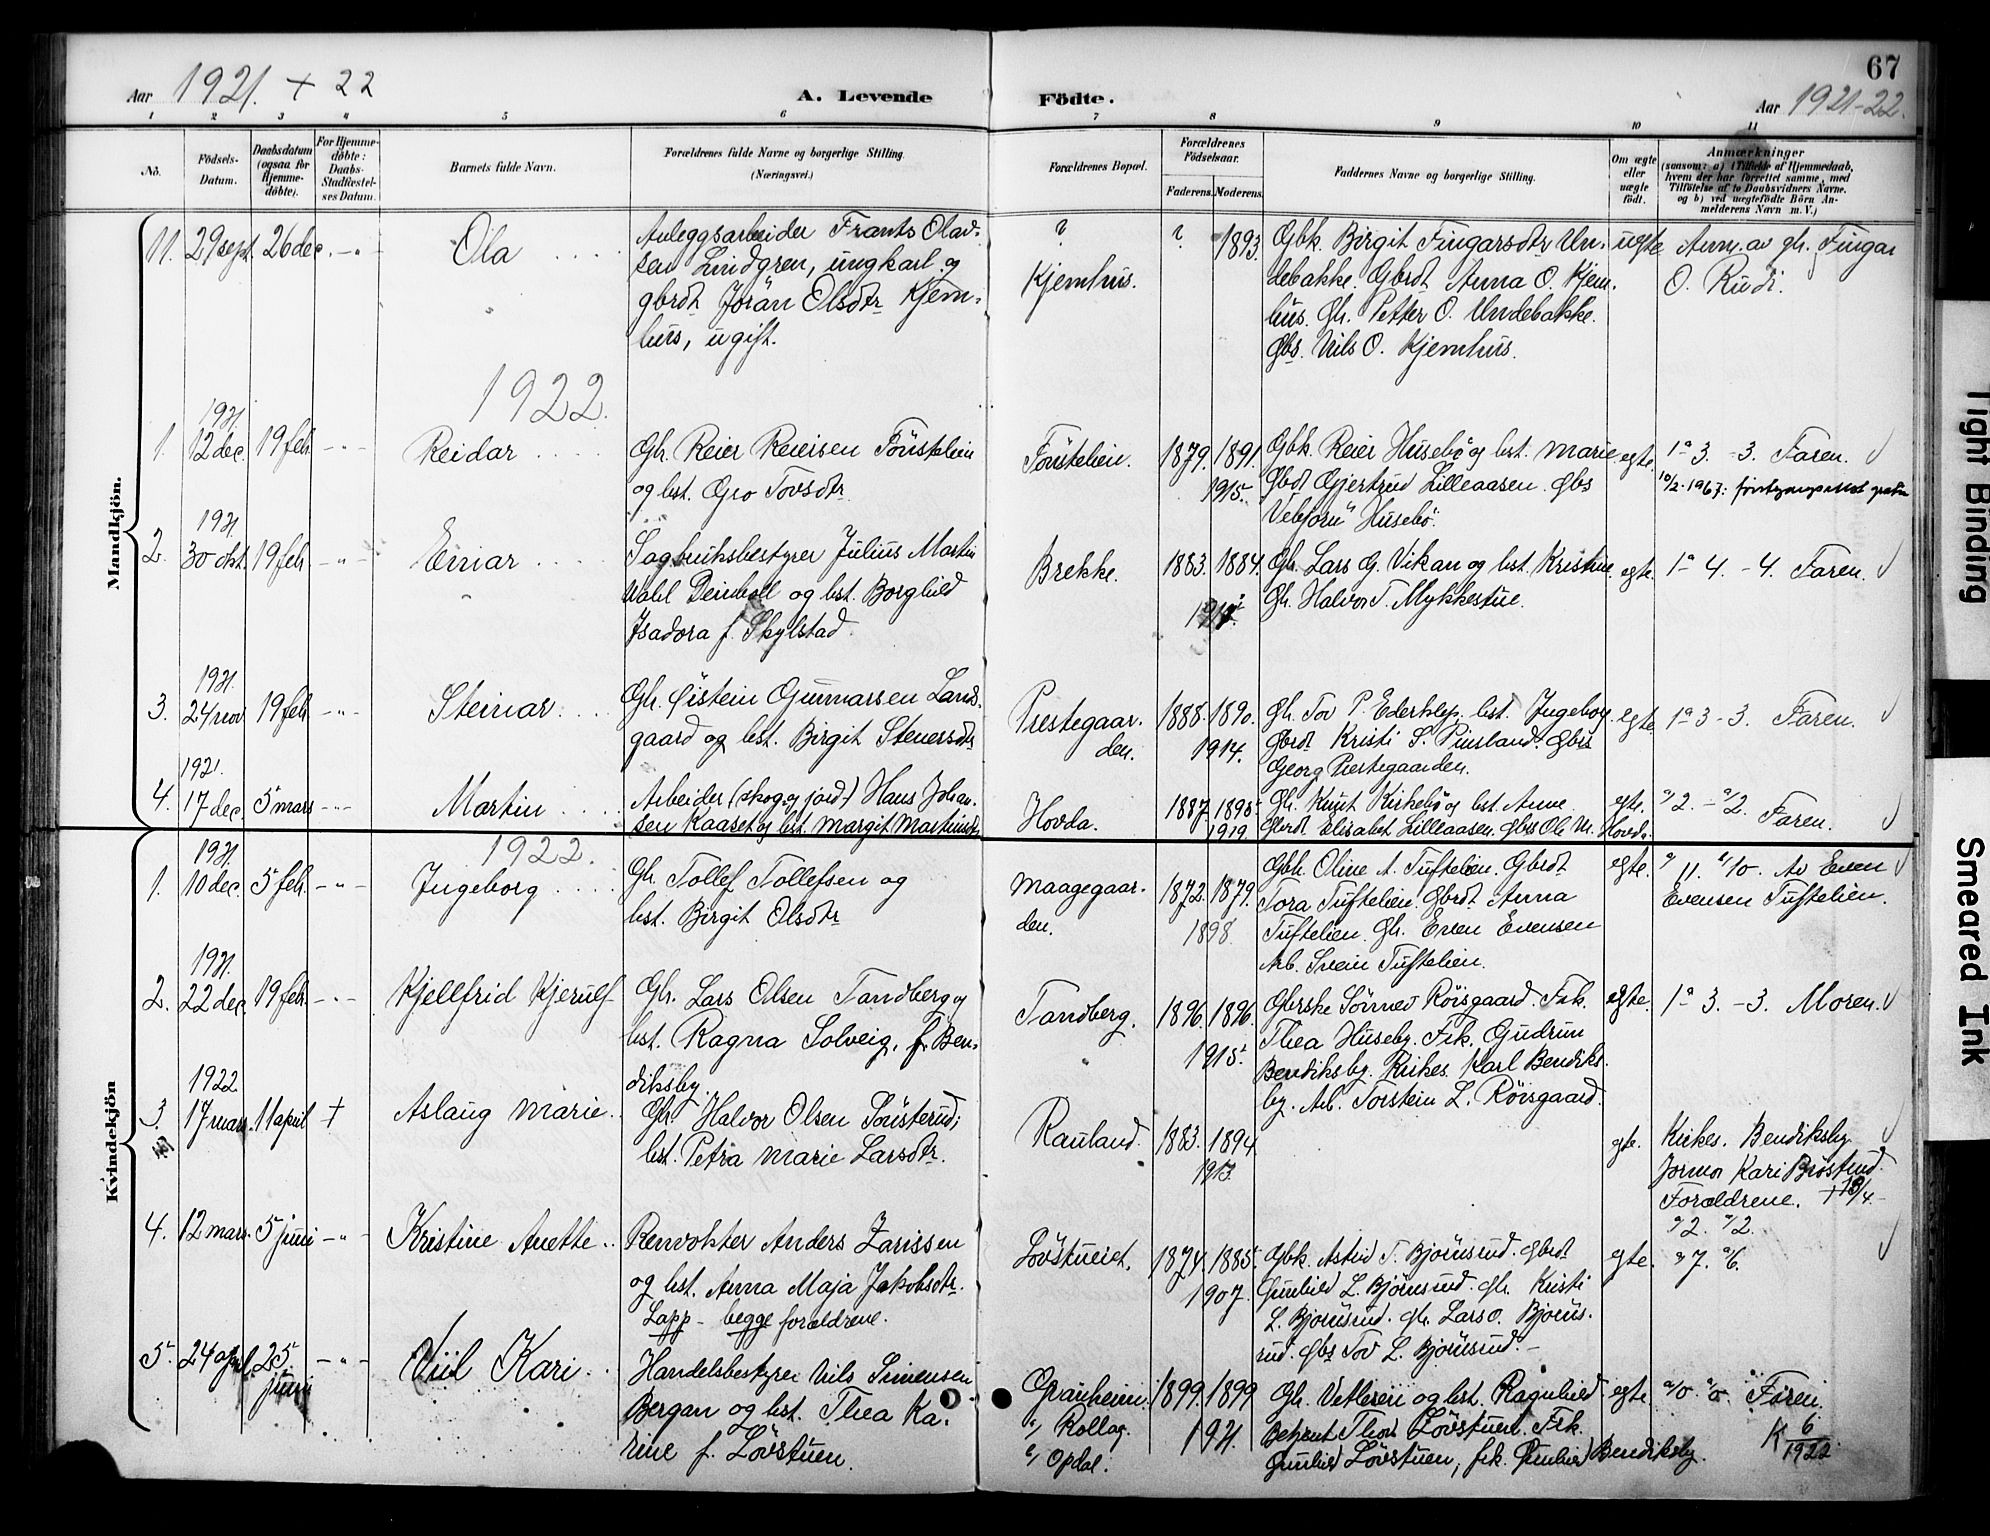 67
Aar 1921. + 22
A. Levende Födte.
Aar 1921-22.
1 2 3 4 5 6 7 8 9 10 11
No.
Födsels-
Datum.
Daabsdatum
(ogsaa for
Hjemme-
döbte).
For Hjemme-
döbte:
Daabs-
Stadfæstel-
ses Datum.
Barnets fulde Navn.
Forældrenes fulde Navne og borgerlige Stilling.
(Næringsvei.)
Forældrenes Bopæl.
Forældrenes
Födselsaar.
Faderens. Moderens.
Faddernes Navne og borgerlige Stilling.
Om ægte
eller
uægte
födt.
Anmærkninger
(saasom: a) i Tilfælde af Hjemmedaab,
hvem der har forrettet samme, med
Tilföielse af to Daabsvidners Navne,
og b) ved uægtefödte Börn An-
melderens Navn m. V.)
Mandkjön.
11. 29 sept. 26 dec. -"- Ola
Anleggsarbeider Frants Olav-
sen Lindgren, ungkarl og
gbrdt Jorän Olsdtr Kjem-
hus, ugift.
? Kjemhus.
? 1893.
Gbk. Birgit Fingarsdtr Un-
debakke. Gbrdt Anna O. Kjem-
hus. Gh. Petter O. Undebakke.
Gbs. Nils O. Kjemhus.
ugte
Anm. av gh. Fingar
O. Rudi.
1922.
1. 1921. 12 dec. 19 feb. -"- Reidar
Gh. Reier Reiersen Fönstelien
og hst. Gro Tovsdtr
Fönstelien.
1879. 1891.
1915.
Gbk. Reier Husebö og hst. Marie
Gbdt Gjertrud Lilleaasen. Gbs
Vebjörn Husebö.
egte.
1 a 3. -3. Faren. √
10/2. 1967:
2. 1921. 30 okt. 19 feb. -"- Einar
Sagbruksbestyrer Julius Martin
Wahl Deinboll og hst. Borghild
Isadora f. Skylstad.
Brekke.
1883. 1884.
Gh. Lars G. Vikan og hst. Kristine
Gh. Halvor T. Mykkestue.
egte.
1 a 4. -4. Faren. √
3. 1921. 24 nov. 19 feb. -"- Steinar
Gh. Öistein Gunnarssen Lands-
gaard og hst. Birgit Stenersdtr
Prestegaar-
den.
1888. 1890.
1914.
Gh. Tov P. Ederklep. hst. Ingeborg.
Gbrdt Kristi S. Gbs
Georg Prestegaarden.
egte
1 a 3 -3. Faren. √
4. 1921. 17 dec. 5 mars -"- Martin
Arbeider (skog og jord) Hans Johan-
sen Kaaset og hst. Margit Martinsdtr
Hovda.
1887. 1895.
1919
Gh. Knut Kirkebö og hst. Anne.
Gbrdt Elisabet Lilleaasen. Gbs Ole N. Hovda.
egte.
2. - 2. Faren. √
Kvindekjön
1922.
1. 1921. 10 dec. 5 feb. -"- Ingeborg
Gh. Tollef Tollefsen og
hst. Birgit Olsdtr
Maagegaar-
den.
1872. 1879.
1898.
Gbk. Oline A. Tuftelien. Gbrdt
Tora Tuftelien. Gbrdt Anna
Tuftelien. Gh. Even Evensen
Arb. Svein Tuftelien.
egte.
11. 10. Av Even √
Evensen Tuftelien.
2. 1921. 22 dec. 19 feb. -"- Kjellfrid Kjerulf
Gh. Lars Olsen Tandberg og
hst. Ragna Solveig, f. Ben-
diksby.
Tandberg.
1896. 1896.
1915.
Gbrske Sönnev Röisgaard. Frk.
Thea Huseby. Frk. Gudrun
Bendiksby. Kirkes. Karl Bendiks-
by. Arb. Torstein L. Röisgaard.
egte.
1 a 3. -3. Moren. √
3. 1922 17 mars. 11 april + Aslaug Marie
Gh. Halvor Olsen Sönsterud;
hst. Petra Marie Larsdtr.
Rauland.
1883. 1894.
1913.
egte.
Kirkes. Bendiksby √
Jormor Kari Bröstrud.
Forældrene. + 18/4 -
2. 2.
4. 12 mars. 5 juni -"- Kristine Anette
Renvokter Anders Zarissen
og hst. Anna Maja Jakobsdtr.
Lapp - begge forældrene.
Lövstueiet.
1874. 1885.
1907.
Gbk. Astrid T. Björnsrud. Gbrdt
Gunhild L. Björnsrud. Gh. Kristi
L. Björnsrud. Gh. Lars O. Björns-
rud. Gbs Tov L. Björnsrud. -
egte.
7. 6. √
5. 24 april. 25. juni -"- Niil Kari
Handelsbestyrer Nils Simensen
Bergan og hst. Thea Ka-
rine f. Lövstuen.
Granheim
i, Rollag.
i, Opdal.
1899. 1899
1921.
Gh. Vetleren og hst. Ragnhild
Betjent Thor Lövstuen. Frk.
Gunhild Lövstuen, frk. Gunhild Bendiksby.
egte.
0. 0. Faren.
K 6/1922
Tight Binding
Smeared Ink